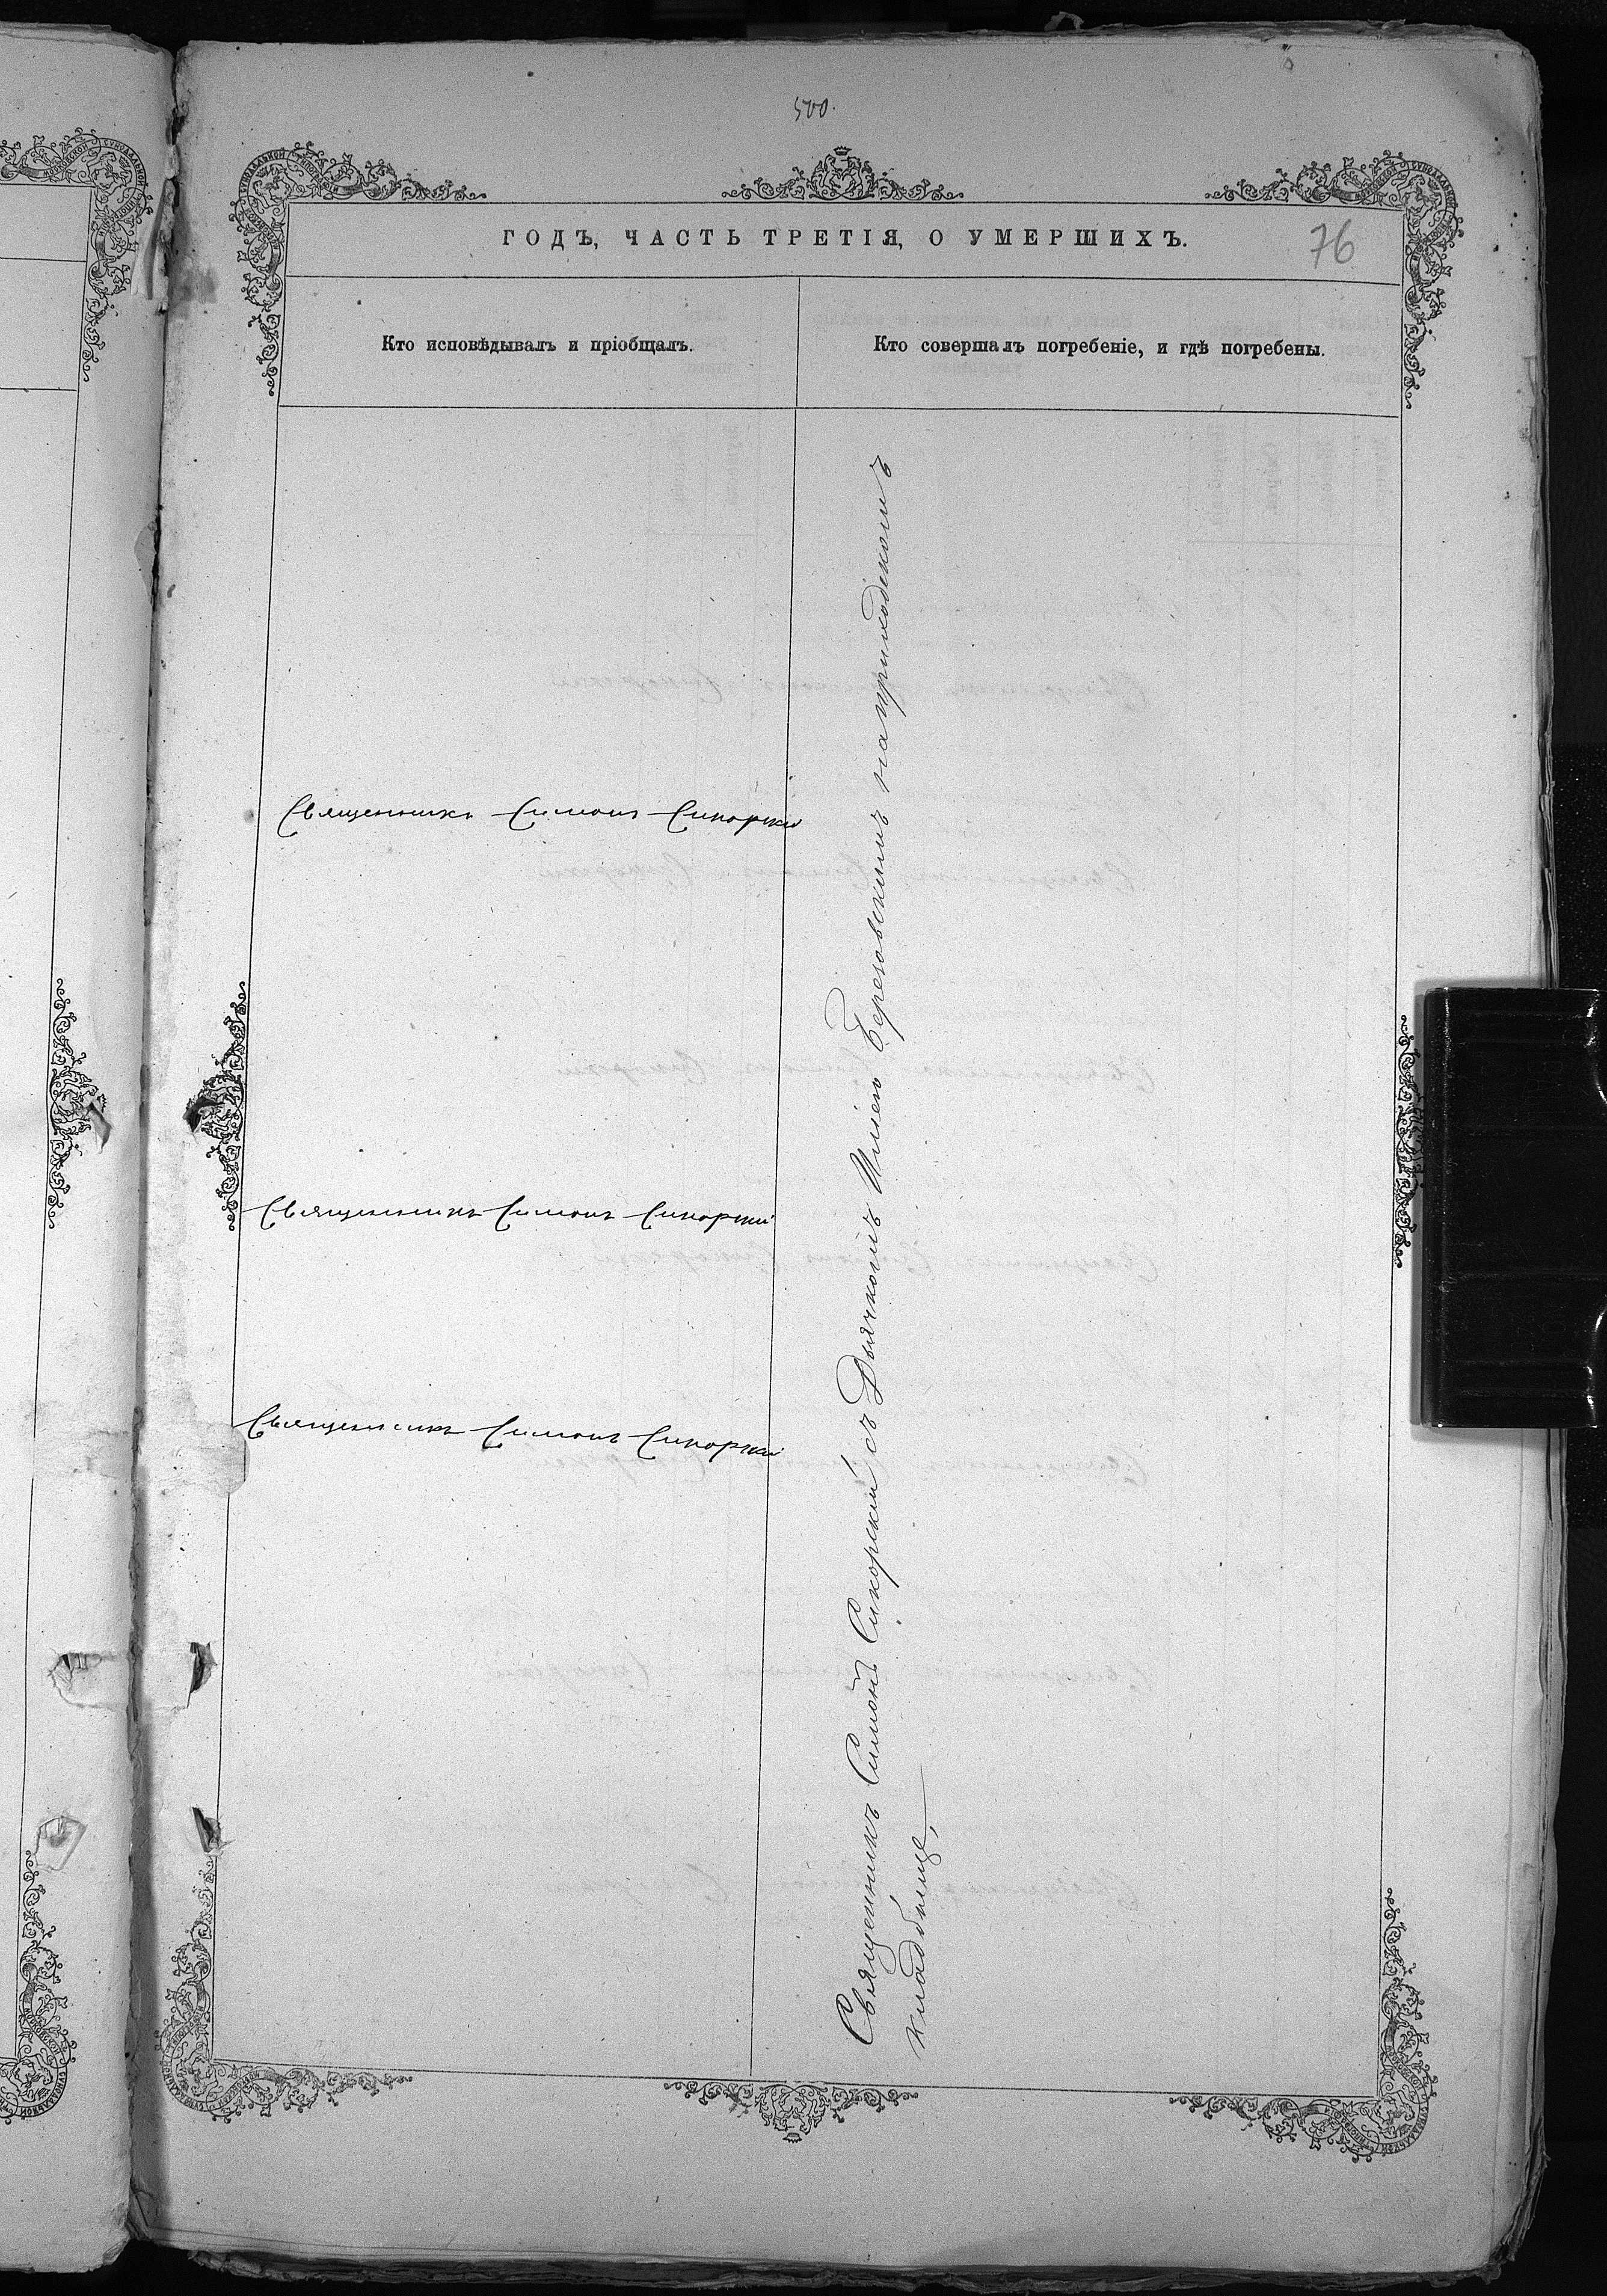 500.
ГОДЪ, ЧАСТЬ ТРЕТІЯ, О УМЕРШИХЪ.
76
Кто исповѣдывалъ и пріобщалъ.
Кто совершалъ погребеніе, и гдѣ погребены.
Священникъ Симонъ Сикорскій
Священникъ Симонъ Сикорскій
Священникъ Симонъ Сикорскій
Священникъ Симонъ Сикорскій съ Дьячкомъ Иліею Березовскимъ на приходскомъ
кладбищѣ,